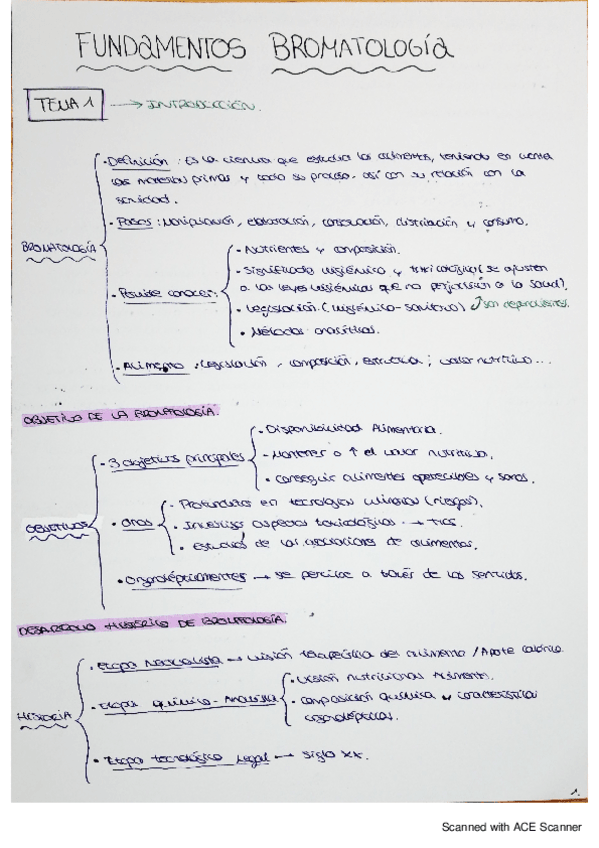 FUNDAMENTOS BROMATOLOGÍA
TEMA 1 → INTRODUCCIÓN.
BROMATOLOGÍA
· Definición : Es la ciencia que estudia los alimentos, teniendo en cuenta
las materias primas y todo su proceso. así con su relación con la
sanidad.
· Pasos : Manipulación, elaboración, conservación, distribución y consumo.
· Permite conocer:
· Nutrientes y composición.
· Significado higiénico y toxicológico (se ajusten
a las leyes higiénicas que no perjudican a la salud).
· Legislación. (higiénico-sanitario) son dependientes.
· Métodos analíticos.
· Alimento : Legislación, composición, estructura; valor nutritivo...
OBJETIVO DE LA BROMATOLOGÍA.
OBJETIVOS
· 3 objetivos principales
· Disponibilidad Alimentaria.
· Mantener o ↑ el valor nutritivo.
· Conseguir alimentos apetecibles y sanos.
· Otros
· Profundizar en tecnologías culinarias (riesgos).
· Investigar aspectos toxicológicos. →
· Estudios de las asociaciones de alimentos.
· Organolépticamentes → se percibe a través de los sentidos.
DESARROLLO HISTÓRICO DE BROMATOLOGÍA.
HISTORIA
· Etapa Naturalista → visión terapéutica del alimento / Aporte calórico.
· Etapa químico - Analítica
· Visión nutricional Alimento.
· Composición química y características
organolépticas.
· Etapa tecnológico Legal → Siglo XX.
1.
Scanned with ACE Scanner